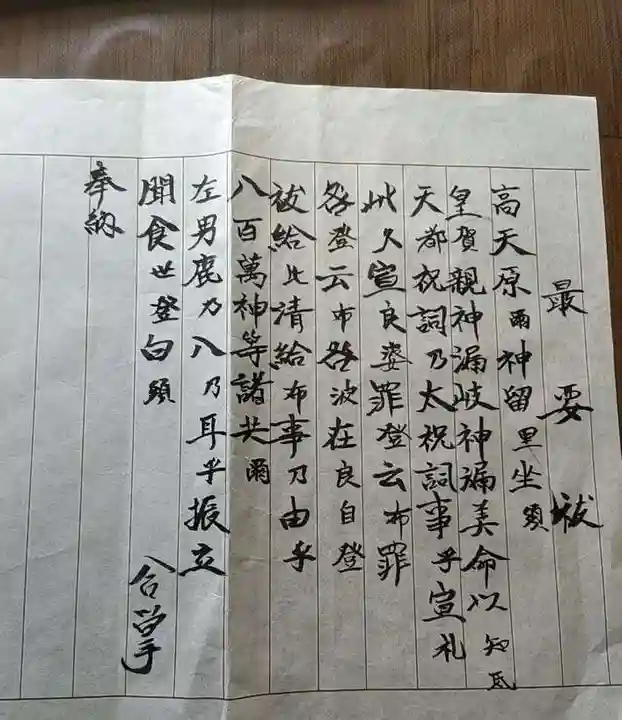 最要祓
高天原爾神留里坐須
皇賀親神漏岐神漏美命以知氐
天都祝詞乃太祝詞事乎宣礼
此久宣良婆罪登云布罪
咎登云布咎波在良自登
祓給比清給布事乃由乎
八百萬神等諸共爾
左男鹿乃八乃耳乎振立
聞食世登白須
奉納
合掌